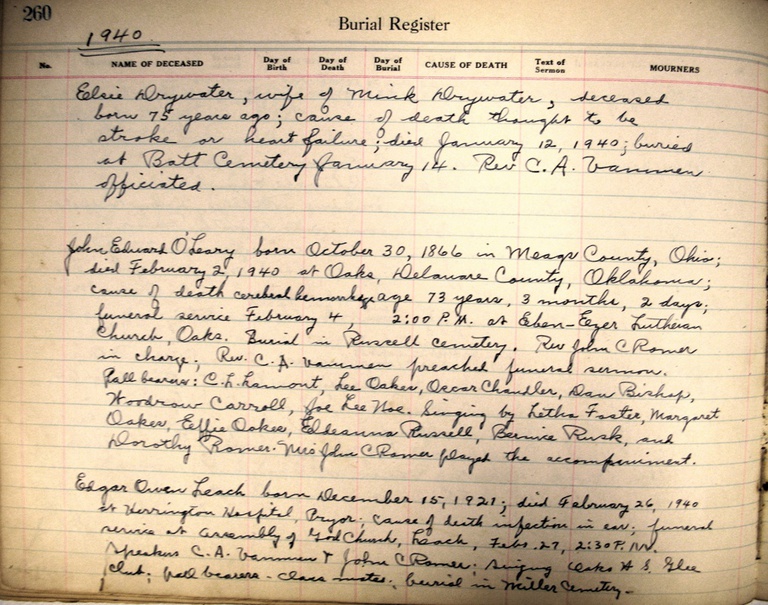 260
Burial Register
1940
No. NAME OF DECEASED Day of Birth Day of Death Day of Burial CAUSE OF DEATH Text of Sermon MOURNERS
Elsie Drywater, wife of Mink Drywater, deceased
born 75 years ago; cause of death thought to be
stroke or heart failure; died January 12, 1940; buried
at Batt Cemetery January 14. Rev C. A. Vammen
officiated.
John Edward O'Leary born October 30, 1866 in Meags County, Ohio;
died February 2, 1940 at Oaks, Delaware County, Oklahoma;
cause of death cerebral hemorrhage age 73 years, 3 months, 2 days;
funeral service February 4, 2:00 P.M. at Eben-Ezer Lutheran
Church, Oaks. Burial in Russell cemetery. Rev John C Romer
in charge; Rev. C. A. Vammen preached funeral sermon.
Pall bearers: C. L. Lamont, Lee Oakes, Oscar Chandler, Dan Bishop,
Woodrow Carroll, Joe Lee Noe. Singing by Letha Foster, Margaret
Oakes, Effie Oakes, Eldeanna Russell, Bernice Rusk, and
Dorothy Romer. Mrs John C Romer played the accompaniment.
Edgar Owen Leach born December 15, 1921; died February 26, 1940
at Herrington Hospital, Pryor; cause of death infection in ear; funeral
service at Assembly of God Church, Leach, Feb. 27, 2:30 P.M.
Speakers C. A. Vammen & John C Romer. Singing Oaks H. S. Glee
Club; pall bearers - class mates; burial in Miller Cemetery.